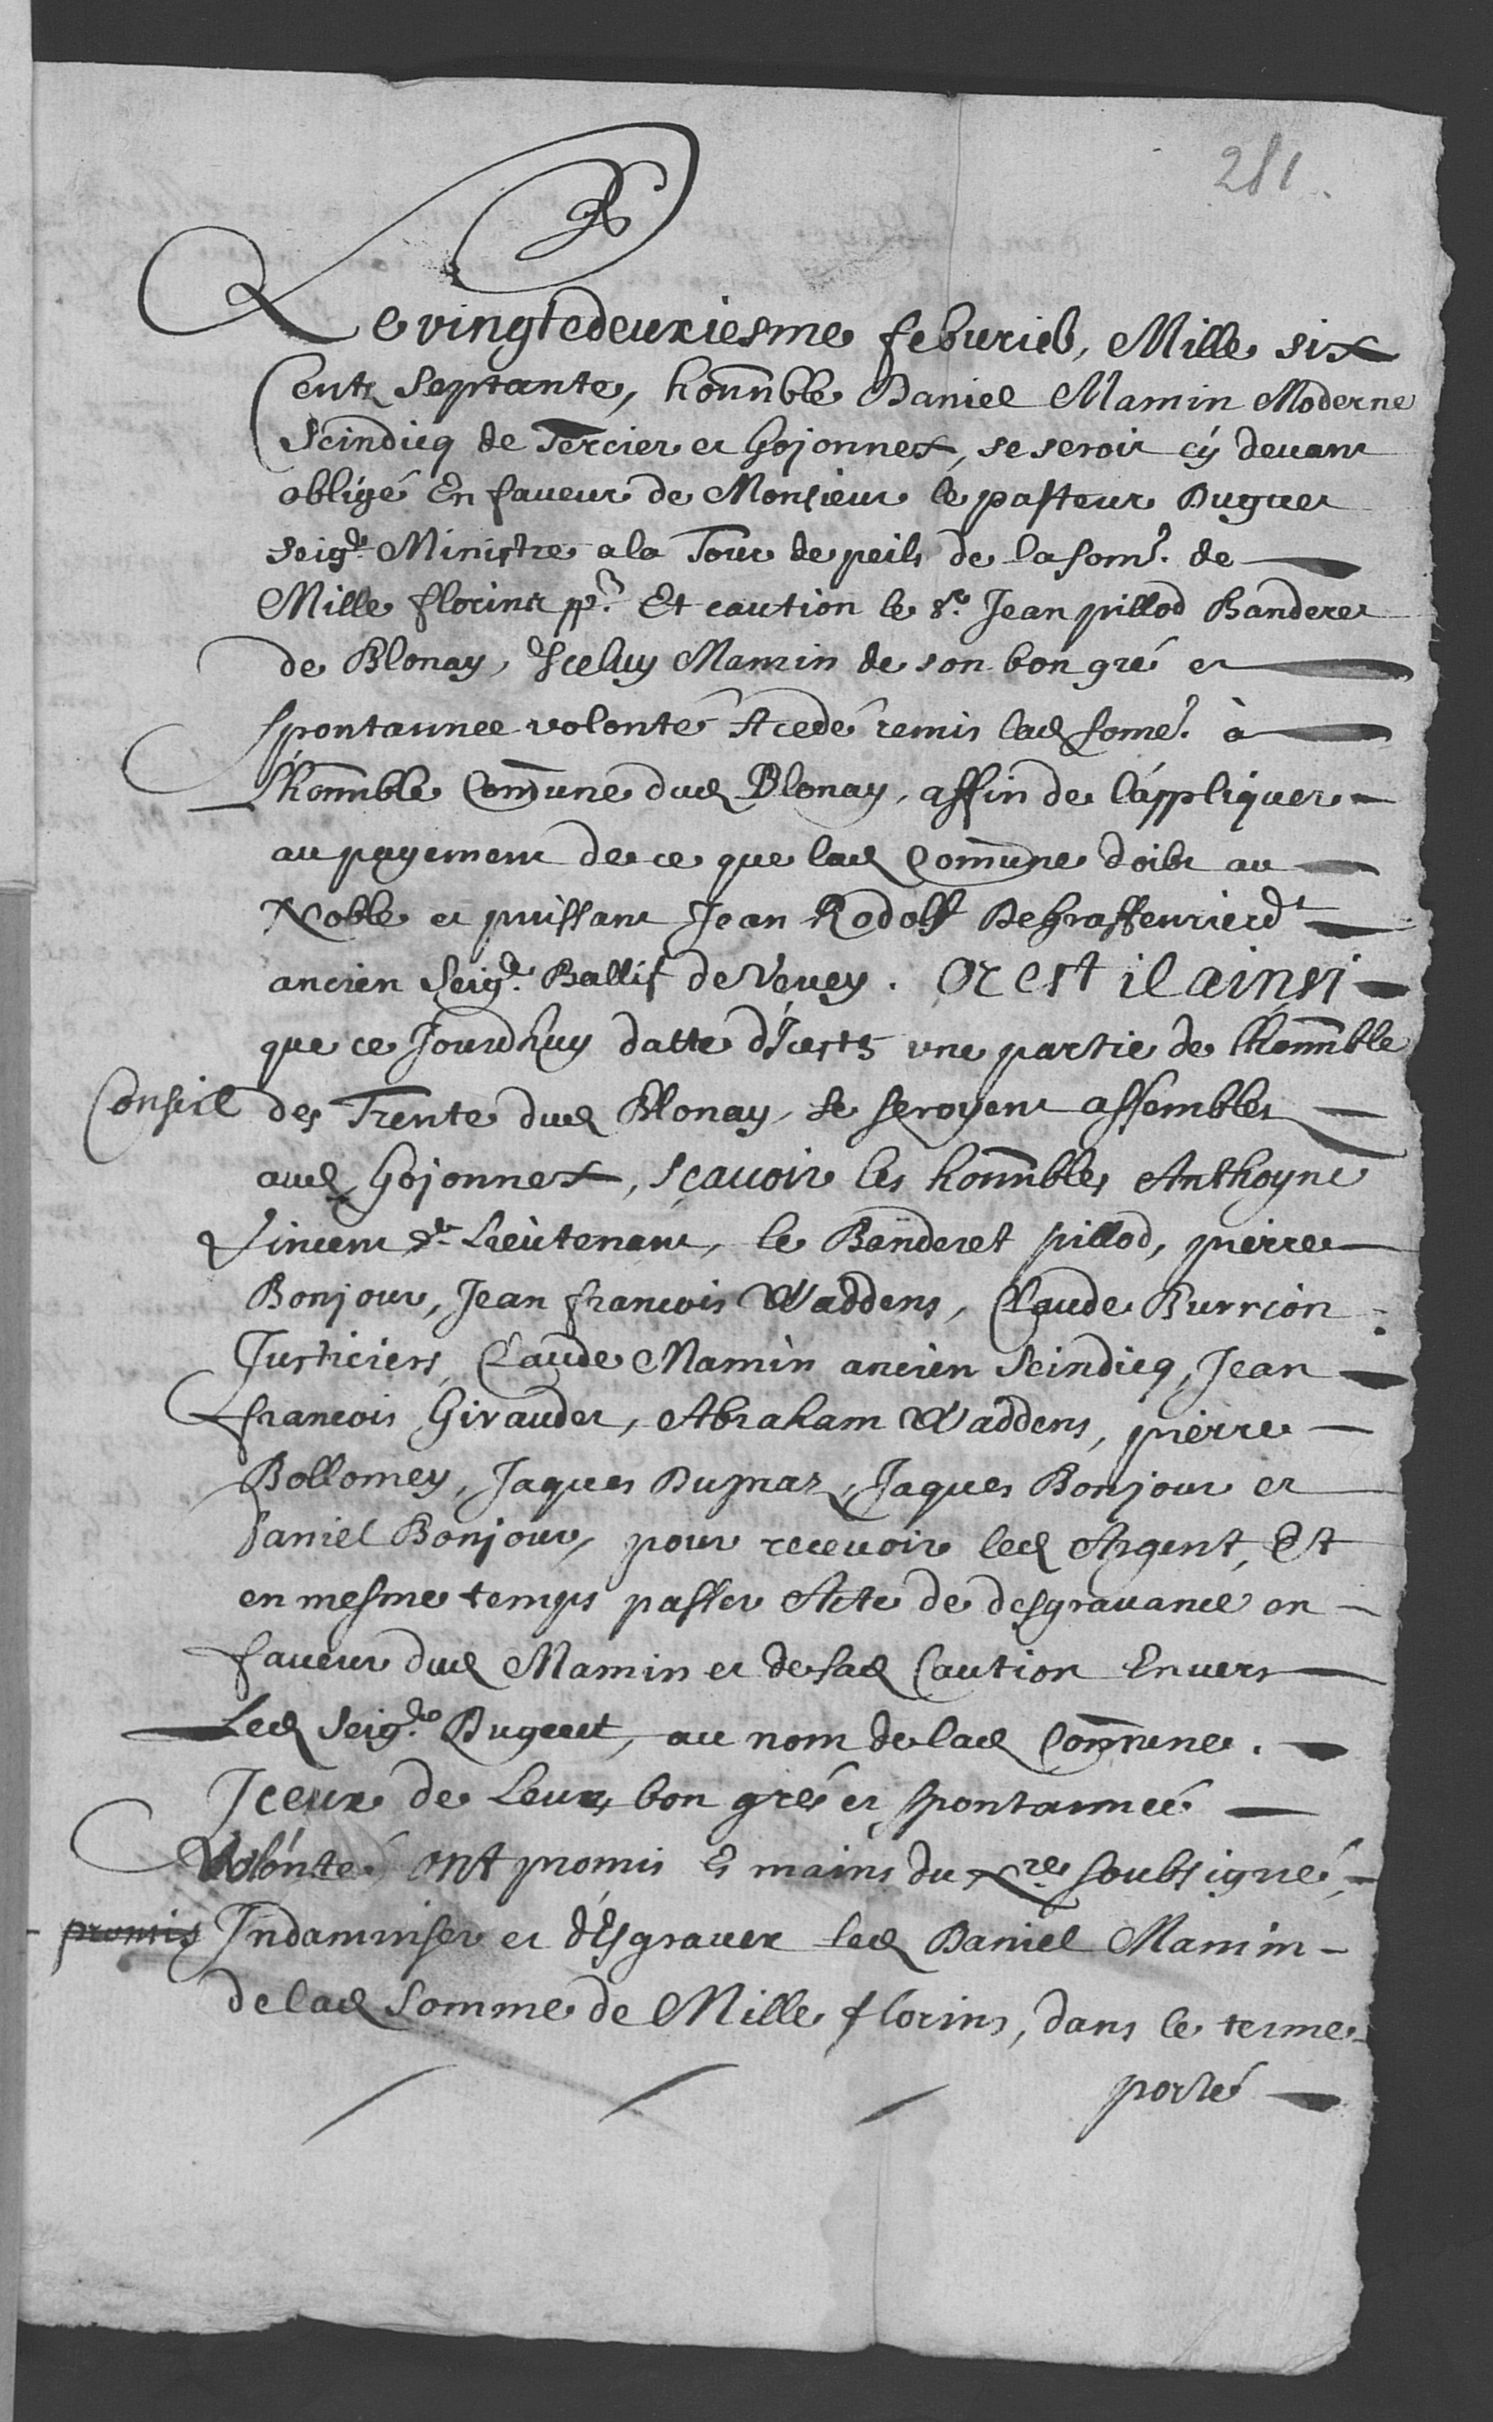 281.
Le vingtedeuxiesme feburier, Mille six
Cents Septante, honnble Daniel Mamin Moderne
Scindicq de Tercier et Gojonnex, se seroit cy devant
obligé En faveur de Monsieur le pasteur Duguet
Seigr. Ministre a la Tour de peils de la some. de
Mille florins pp. Et caution le Sr. Jean pillod Banderet
de Blonay, Iceluy Mamin de son bon gré et
spontannee volonté A cedé remis lad some. à
L'honnble Comune dud Blonay, affin de l'appliquer
au payement de ce que lad Comune doibt au
Noble et puissant Jean Rodolf DeGraffenrierdt
ancien Seigr. Ballif de Vevey. Or est il ainsi
que ce Jourdhuy datte d'Icestes une partie de l'honnble
Conseil des Trente dud Blonay, se seroyent assembles
aud Gojonnex, Sçavoir les honnbles Anthoyne
Vincent Sr. Lieutenant, le Banderet pillod, pierre
Bonjour, Jean francois Waddens, Claude Burrion
Justiciers, Claude Mamin ancien Scindicq, Jean
francois Giraudet, Abraham Waddens, pierre
Bollomey, Jaques Dupraz, Jaques Bonjour et
Daniel Bonjour, pour recevoir led Argent, Et
en mesme temps passer Acte de desgravance en
faveur dud Mamin et de sad Caution Envers
Led Seigr. Duguet, au nom de lad Comune.
Iceux de Leurs bon gré et spontannee
Volonté ont promis Es mains du Nre soubsigné,
promis Indamniser et dEsgraver led Daniel Mamin
de lad Somme de Mille florins, dans le terme
porté